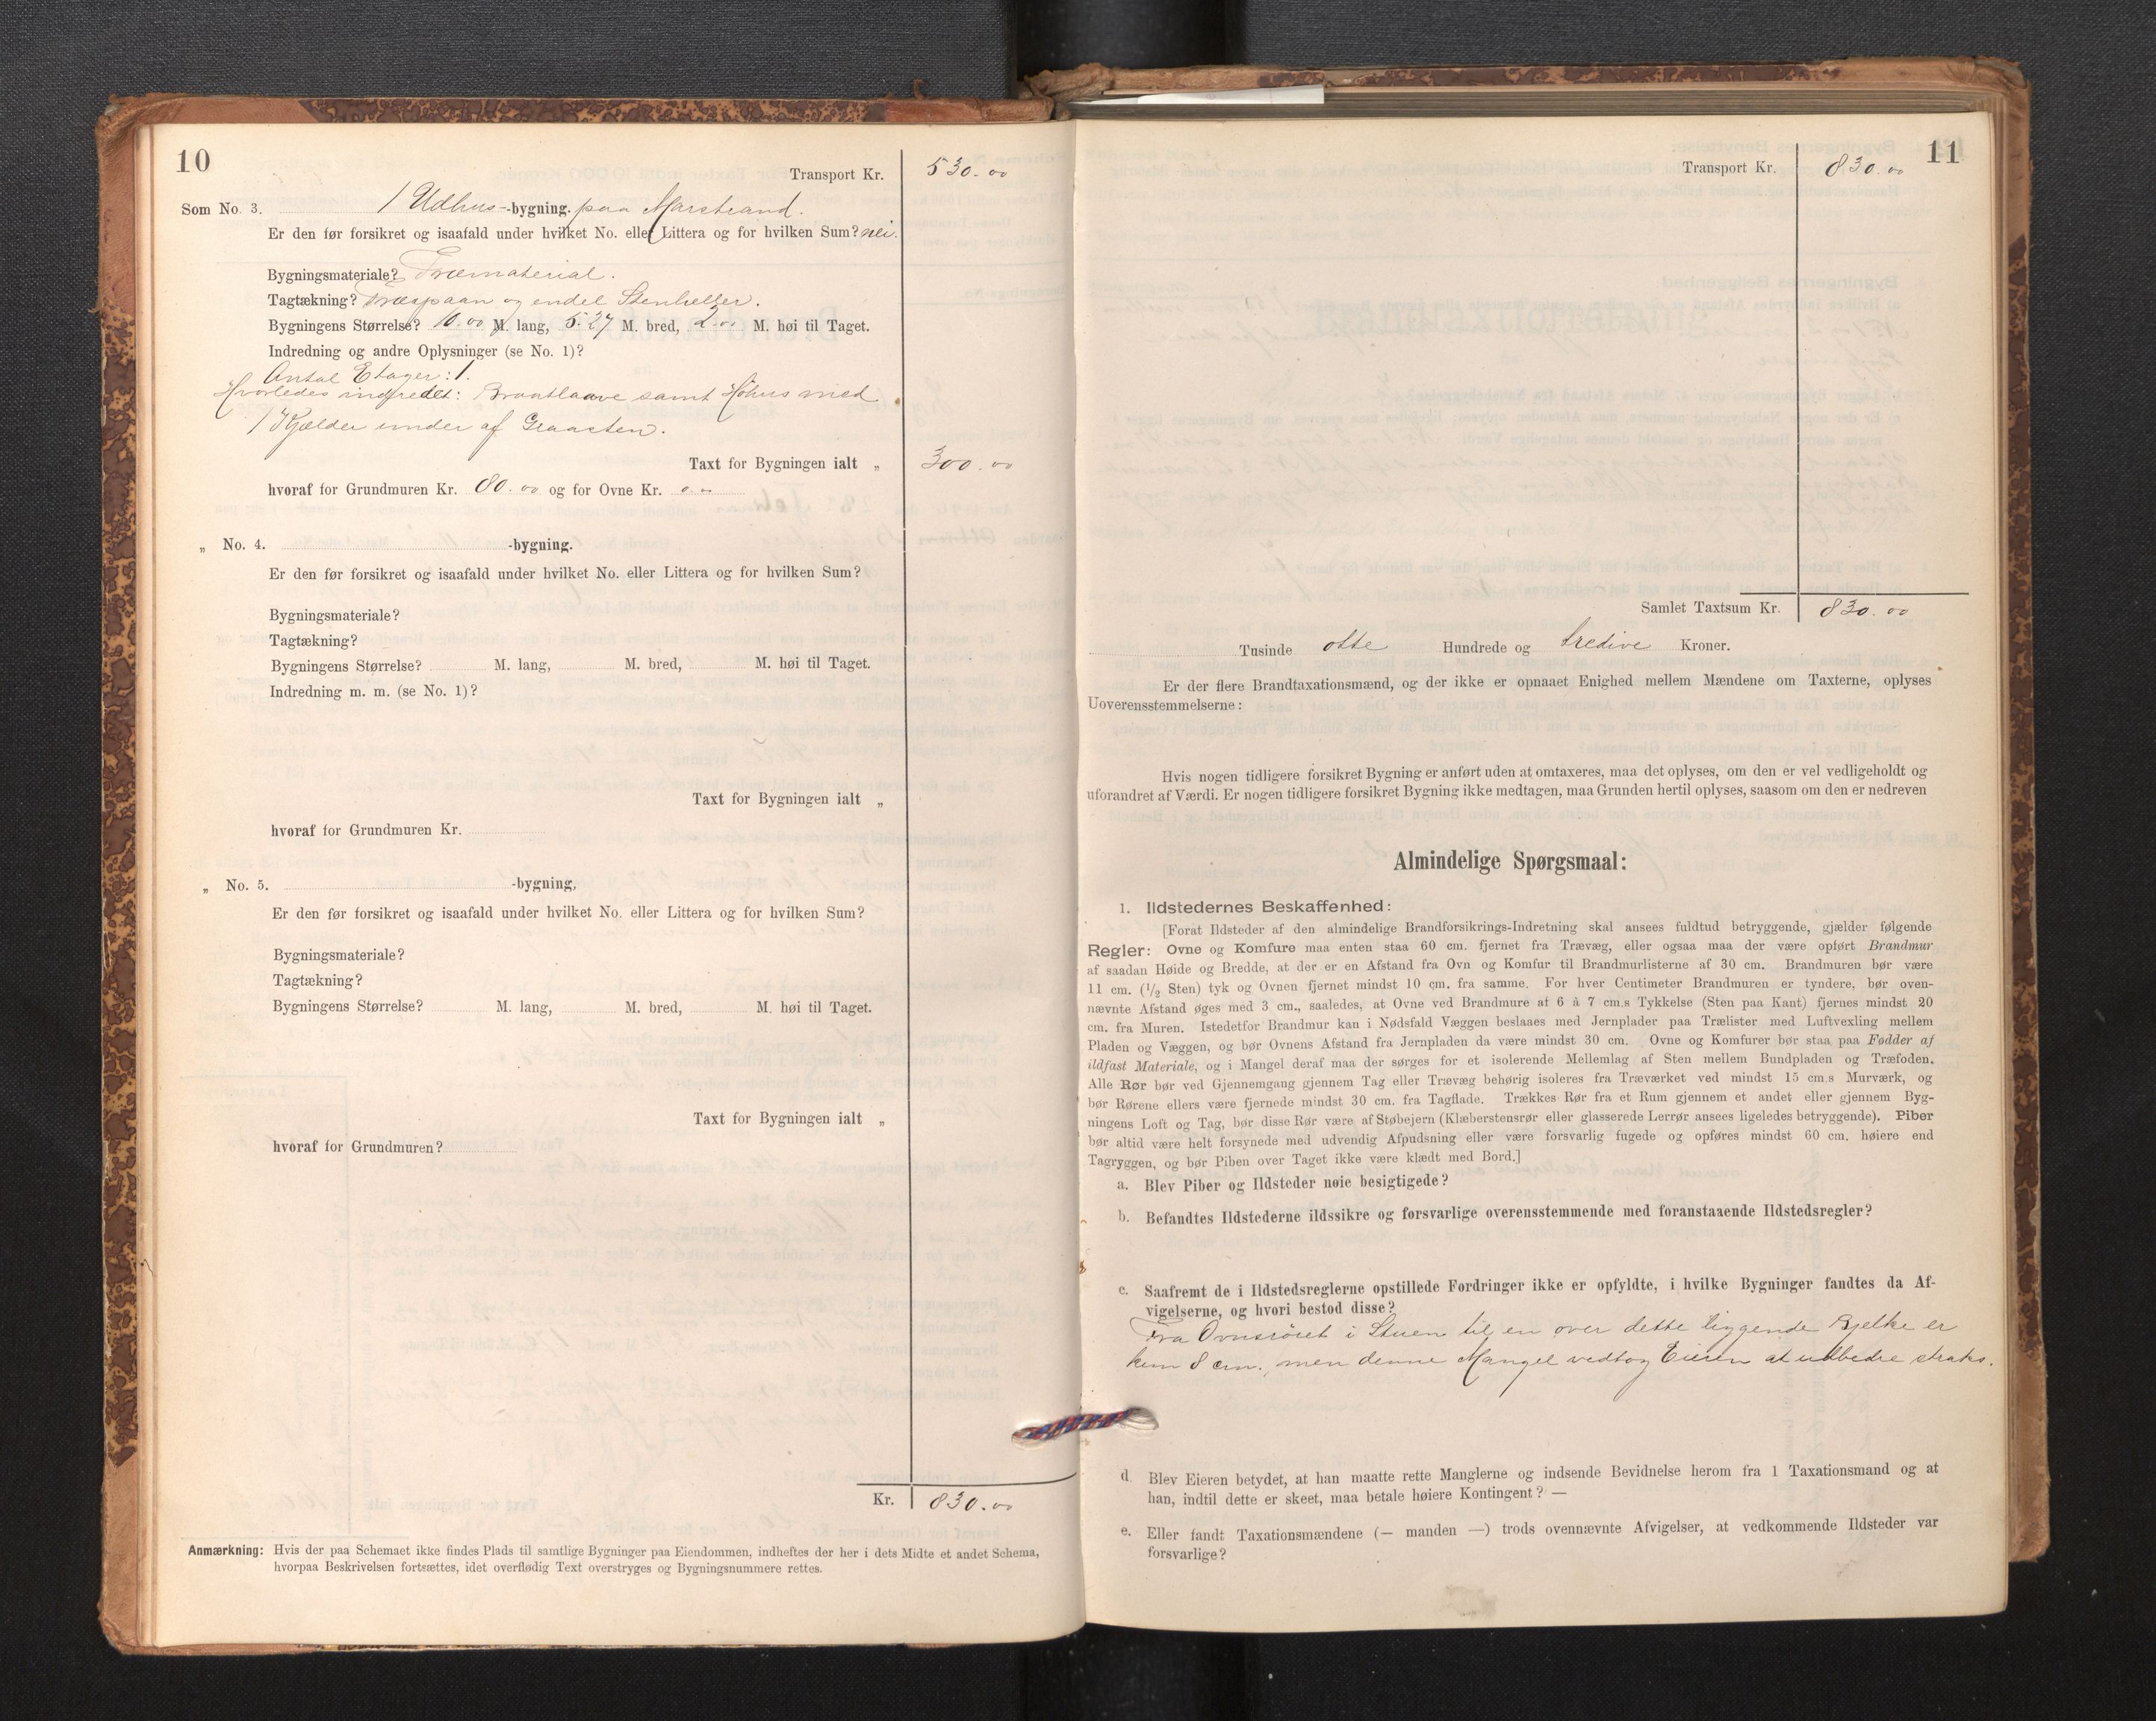 10
Transport Kr. 530.00
Som No. 3. 1 Udhus-bygning. paa Marstrand.
Er den før forsikret og isaafald under hvilket No. eller Littera og for hvilken Sum? nei.
Bygningsmateriale? Træmaterial.
Tagtækning? Træspaan og endel Stenheller.
Bygningens Størrelse? 10.00 M. lang, 5.27 M. bred, 2.00 M. høi til Taget.
Indredning og andre Oplysninger (se No. 1)?
Antal Etager: 1.
Hvorledes indredet: Braatlaave samt Høhus med
1 Kjælder under af Graasten.
Taxt for Bygningen ialt „ 300.00
hvoraf for Grundmuren Kr. 80.00 og for Ovne Kr.
„ No. 4. -bygning.
Er den før forsikret og isaafald under hvilket No. eller Littera og for hvilken Sum?
Bygningsmateriale?
Tagtækning?
Bygningens Størrelse? M. lang, M. bred, M. høi til Taget.
Indredning m. m. (se No. 1)?
Taxt for Bygningen ialt „
hvoraf for Grundmuren Kr.
„ No. 5. -bygning,
Er den før forsikret og isaafald under hvilket No. eller Littera og for hvilken Sum?
Bygningsmateriale?
Tagtækning?
Bygningens Størrelse? M. lang, M. bred, M. høi til Taget.
Taxt for Bygningen ialt „
hvoraf for Grundmuren?
Kr. 830.00
Anmærkning: Hvis der paa Schemaet ikke findes Plads til samtlige Bygninger paa Eiendommen, indheftes der her i dets Midte et andet Schema,
hvorpaa Beskrivelsen fortsættes, idet overflødig Text overstryges og Bygningsnummere rettes.
11
Transport Kr. 830.00
Samlet Taxtsum Kr. 830.00
Tusinde otte Hundrede og tredive Kroner.
Er der flere Brandtaxationsmænd, og der ikke er opnaaet Enighed mellem Mændene om Taxterne, oplyses
Uoverensstemmelserne:
Hvis nogen tidligere forsikret Bygning er anført uden at omtaxeres, maa det oplyses, om den er vel vedligeholdt og
uforandret af Værdi. Er nogen tidligere forsikret Bygning ikke medtagen, maa Grunden hertil oplyses, saasom om den er nedreven
Almindelige Spørgsmaal:
1. Ildstedernes Beskaffenhed:
[Forat Ildsteder af den almindelige Brandforsikrings-Indretning skal ansees fuldtud betryggende, gjælder følgende
Regler: Ovne og Komfure maa enten staa 60 cm. fjernet fra Trævæg, eller ogsaa maa der være opført Brandmur
af saadan Høide og Bredde, at der er en Afstand fra Ovn og Komfur til Brandmurlisterne af 30 cm. Brandmuren bør være
11 cm. (1/2 Sten) tyk og Ovnen fjernet mindst 10 cm. fra samme. For hver Centimeter Brandmuren er tyndere, bør oven-
nævnte Afstand øges med 3 cm., saaledes, at Ovne ved Brandmure af 6 à 7 cm.s Tykkelse (Sten paa Kant) fjernes mindst 20
cm. fra Muren. Istedetfor Brandmur kan i Nødsfald Væggen beslaaes med Jernplader paa Trælister med Luftvexling mellem
Pladen og Væggen, og bør Ovnens Afstand fra Jernpladen da være mindst 30 cm. Ovne og Komfurer bør staa paa Fødder af
ildfast Materiale, og i Mangel deraf maa der sørges for et isolerende Mellemlag af Sten mellem Bundpladen og Træfoden.
Alle Rør bør ved Gjennemgang gjennem Tag eller Trævæg behørig isoleres fra Træværket ved mindst 15 cm.s Murværk, og
bør Rørene ellers være fjernede mindst 30 cm. fra Tagflade. Trækkes Rør fra et Rum gjennem et andet eller gjennem Byg-
ningens Loft og Tag, bør disse Rør være af Støbejern (Klæberstensrør eller glasserede Lerrør ansees ligeledes betryggende). Piber
bør altid være helt forsynede med udvendig Afpudsning eller være forsvarlig fugede og opføres mindst 60 cm. høiere end
Tagryggen, og bør Piben over Taget ikke være klædt med Bord.]
a. Blev Piber og Ildsteder nøie besigtigede?
b. Befandtes Ildstederne ildssikre og forsvarlige overensstemmende med foranstaaende Ildstedsregler?
c. Saafremt de i Ildstedsreglerne opstillede Fordringer ikke er opfyldte, i hvilke Bygninger fandtes da Af-
vigelserne, og hvori bestod disse?
Fra Ovnsröret i Stuen til en over dette liggende Bjelke er
kun 8 cm., men denne Mangel vedtog Eieren at udbedre straks.
d. Blev Eieren betydet, at han maatte rette Manglerne og indsende Bevidnelse herom fra 1 Taxationsmand og at
han, indtil dette er skeet, maa betale høiere Kontingent? —
e. Eller fandt Taxationsmændene (— manden —) trods ovennævnte Afvigelser, at vedkommende Ildsteder var
forsvarlige?